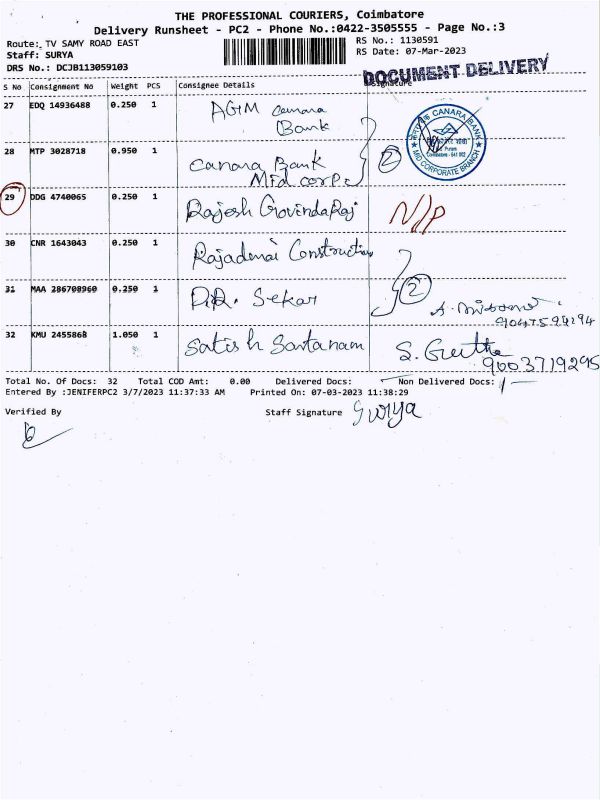 THE PROFESSIONAL COURIERS, Coimbatore
Delivery Runsheet - PC2 - Phone No.:0422-3505555 - Page No.:3
Route: TV SAMY ROAD EAST RS No.: 1130591
Staff: SURYA RS Date: 07-Mar-2023
DRS No.: DCJB113059103 DOCUMENT DELIVERY
S No Consignment No Weight PCS Consignee Details Signature
27 EDQ 14936488 0.250 1 AGM Canara
Bank
CANARA BANK
MID CORPORATE BRANCH
28 MTP 3028718 0.950 1 Canara Bank 2
Mid corp
29 DDG 4740065 0.250 1 Rajesh GovindaRaj N/P
30 CNR 1643043 0.250 1 Construction
31 MAA 286708960 0.250 1 Sekar 2
32 KMU 2455868 1.050 1 Satish Santanam S. Geetha
9003719295
Total No. Of Docs: 32 Total COD Amt: 0.00 Delivered Docs: Non Delivered Docs: 1
Entered By :JENIFERPC2 3/7/2023 11:37:33 AM Printed On: 07-03-2023 11:38:29
Verified By Staff Signature Surya